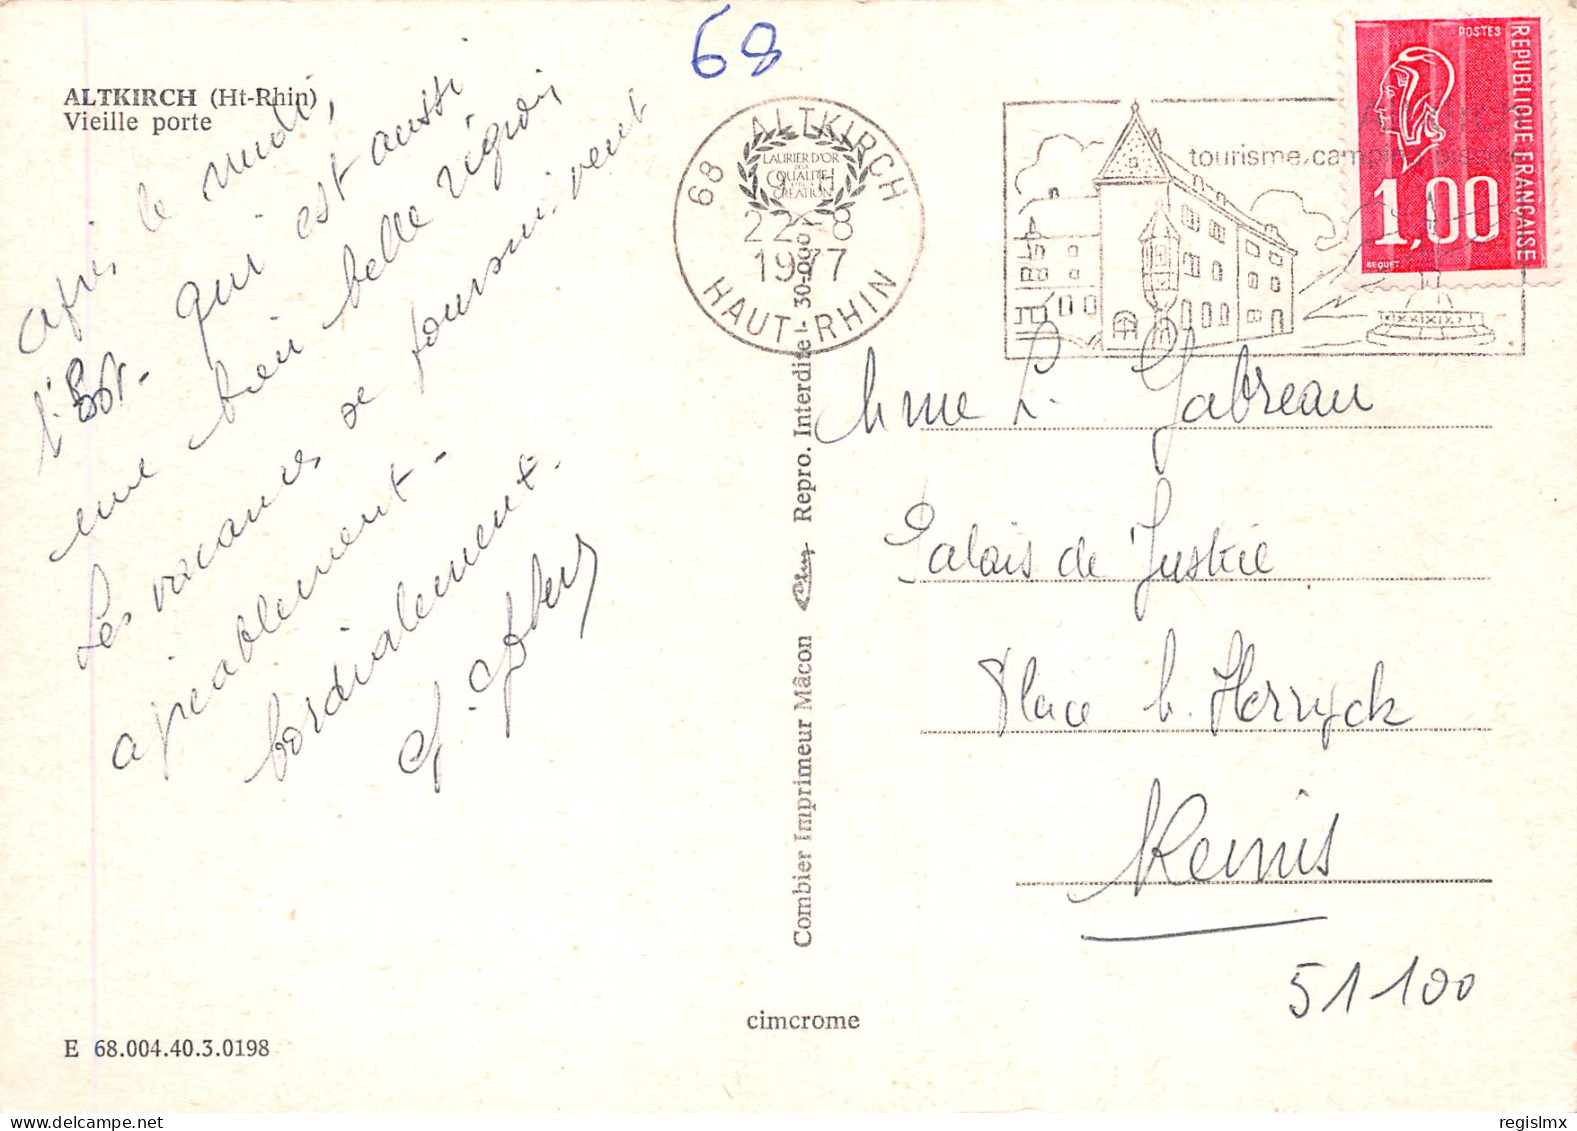 68
ALTKIRCH (Ht-Rhin)
Vieille porte
après le midi,
l'Est - qui est aussi
une bien belle région
Les vacances se poursuivent
agréablement -
Cordialement.
68 ALTKIRCH
LAURIER D'OR
DE LA
QUALITÉ
CREATION
22-8
1977
HAUT-RHIN
tourisme, camping, piscine
POSTES
REPUBLIQUE FRANÇAISE
1,00
BEQUET
Combier Imprimeur Mâcon Cim Repro. Interdite - 30-000
Mme L. Gabreau
Palais de Justice
Place M. Herryck
Reims
51100
cimcrome
E 68.004.40.3.0198
regislmx